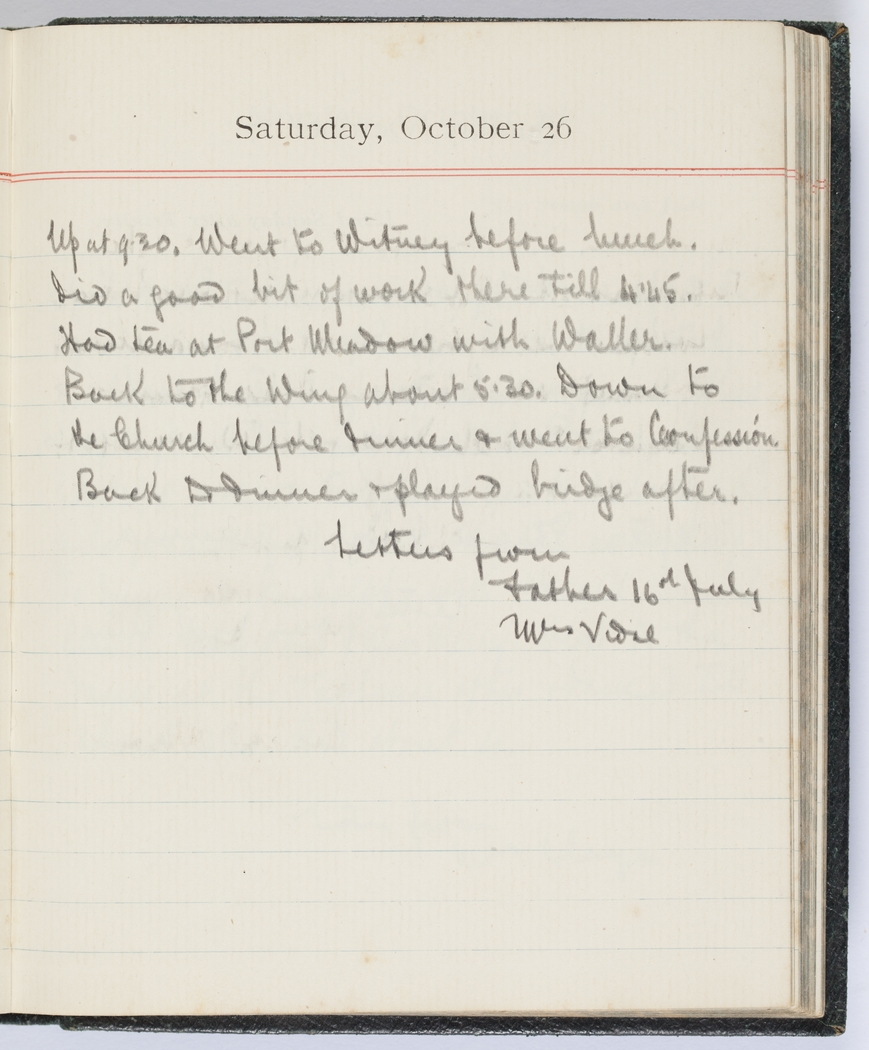 Saturday, October 26
Up at 9.30. Went to Witney before lunch.
Did a good bit of work there till 4.45.
Had tea at Port Meadow with Waller.
Back to the Wing about 5.30. Down to
the Church before dinner & went to Confession.
Back to dinner & played bridge after.
Letters from
Father 16th July
Mrs Vidal